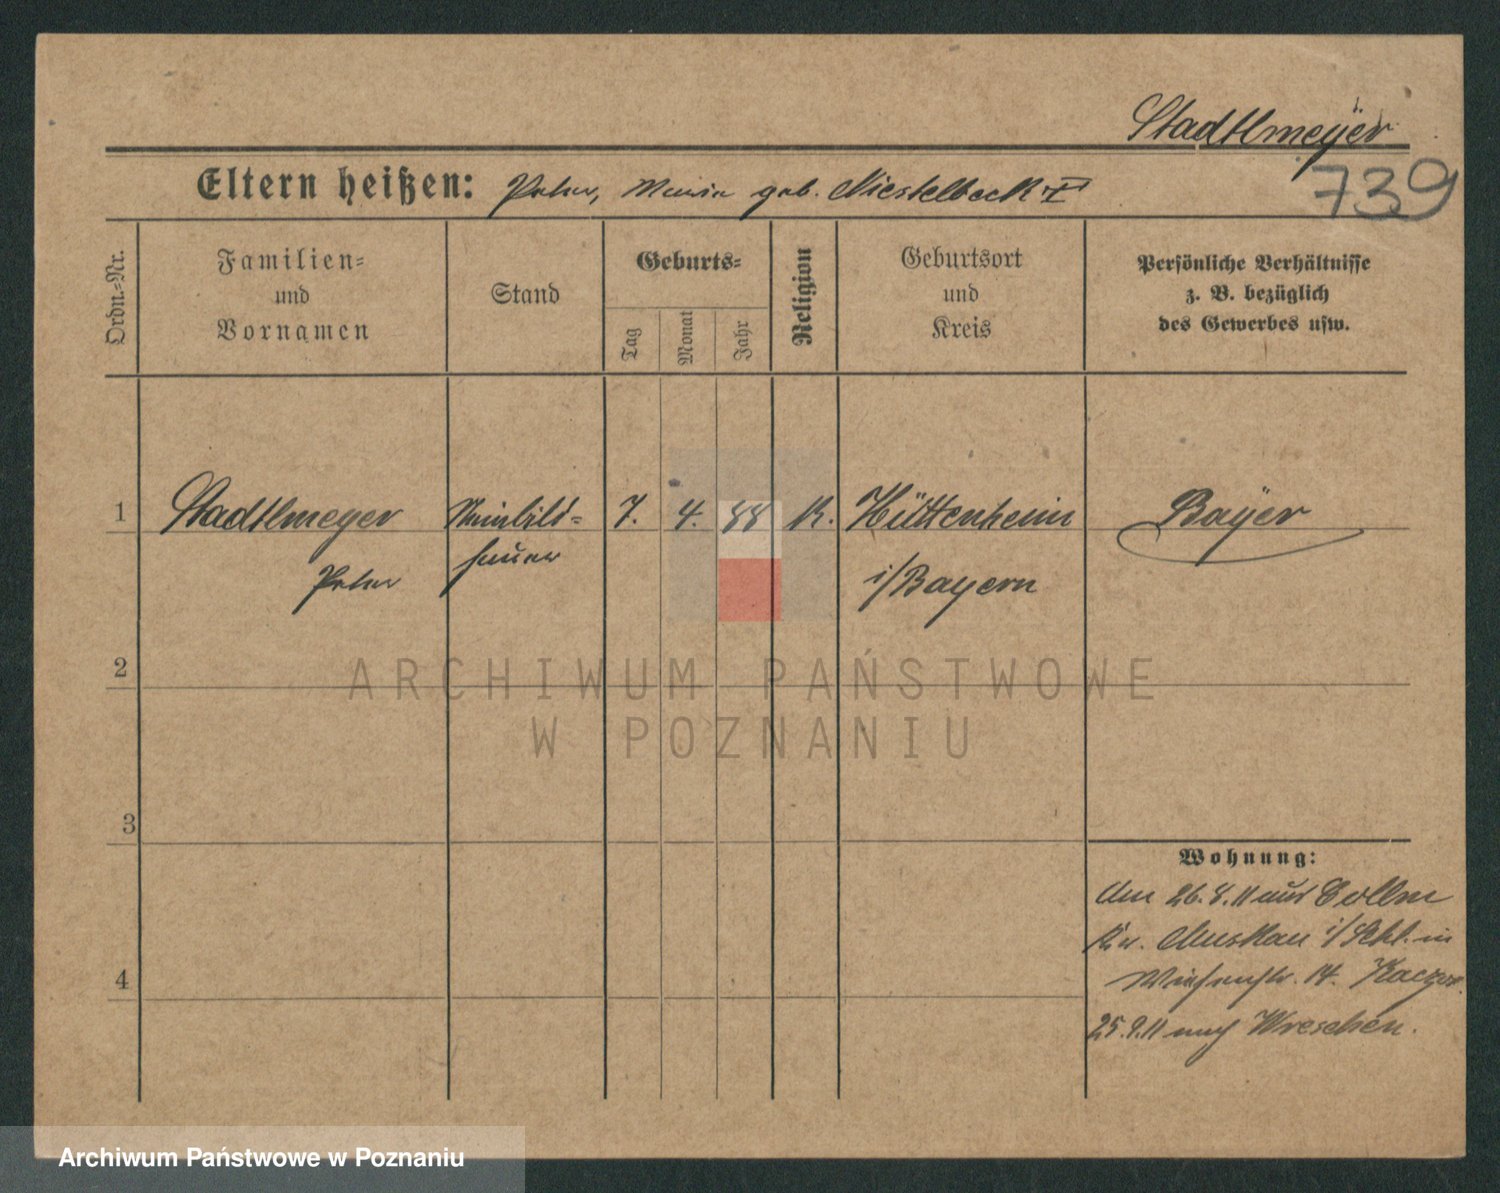 Stadtlmeÿer
739
Eltern heißen: Peter, Maria geb. Niestelbeck
Ordn.-Nr.
Familien-
und
Vornamen
Stand
Geburts-
Tag
Monat
Jahr
Religion
Geburtsort
und
Kreis
Persönliche Verhältnisse
z. B. bezüglich
des Gewerbes usw.
1 Stadtlmeyer Steinbild- 7. 4. 88 K. Hüttenheim Bayer
Peter hauer i/Bayern
2
ARCHIWUM PAŃSTWOWE
W POZNANIU
3
Wohnung:
Am 26.8.11 aus Collm
Kr. Muskau i/Schl. in
4
Wiesenstr. 14.
25.9.11 nach Wreschen.
Archiwum Państwowe w Poznaniu